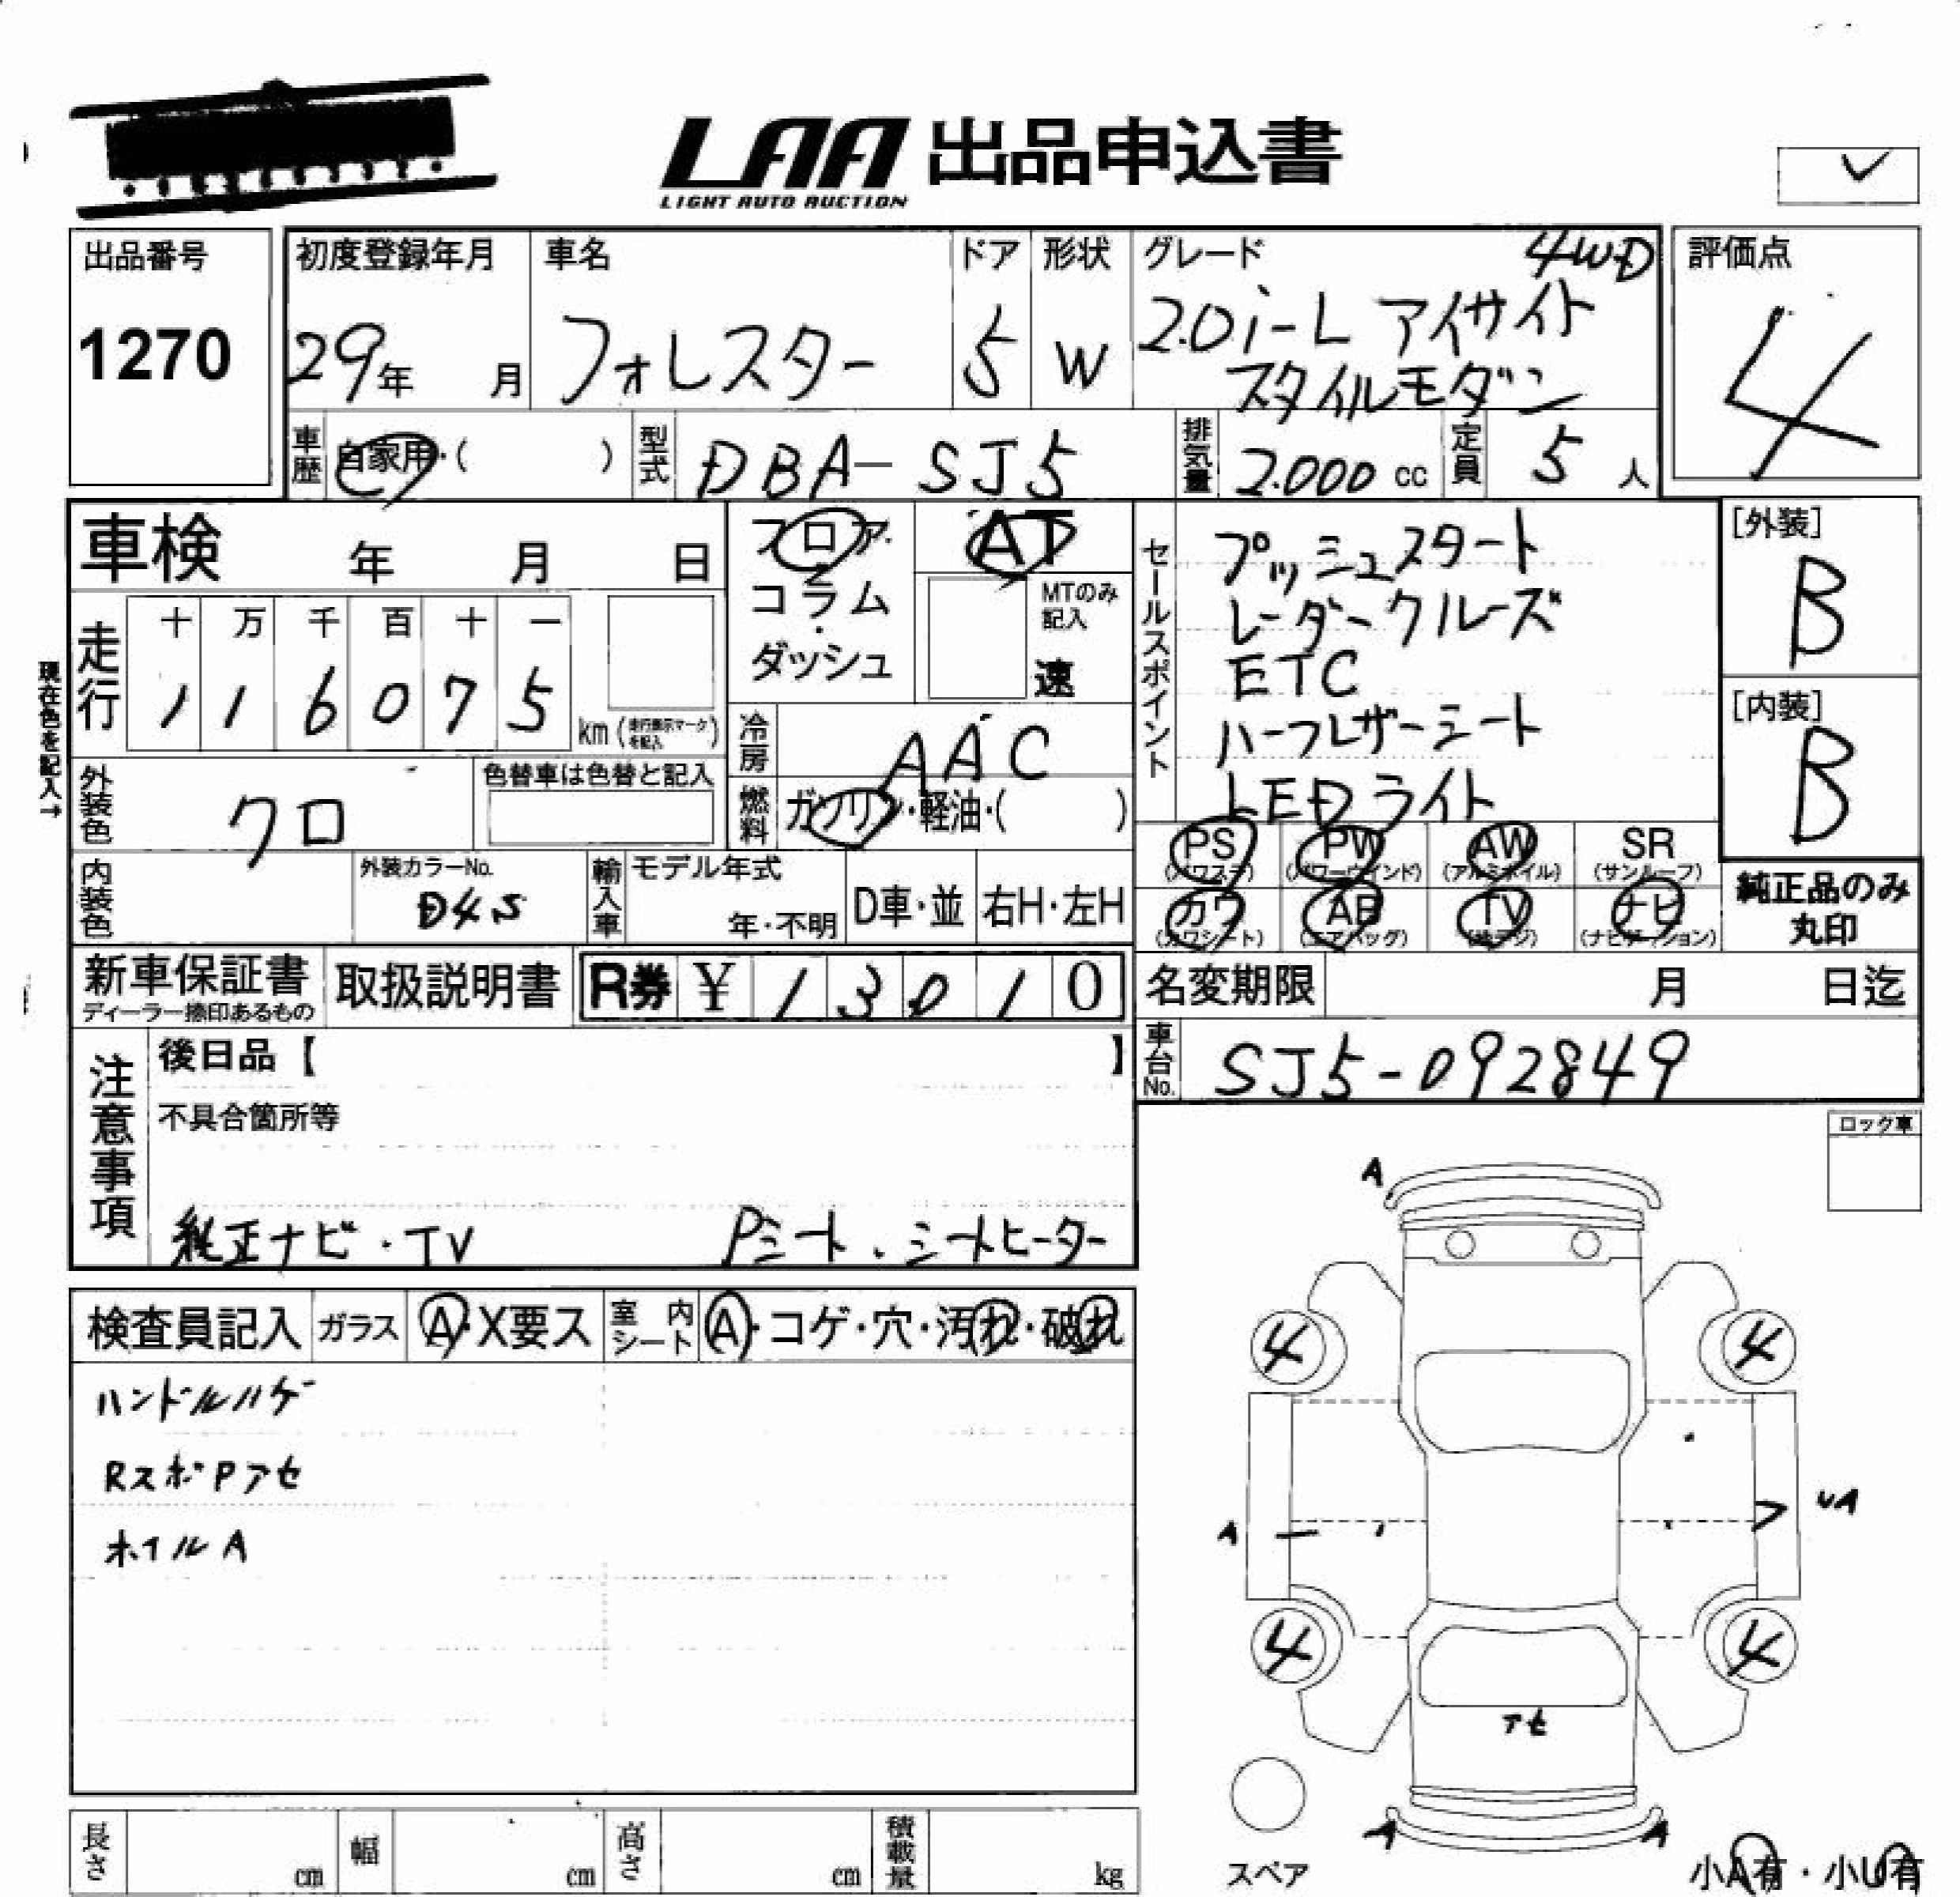 LAA 出品申込書
LIGHT AUTO AUCTION
出品番号
1270
初度登録年月
29年 月
車名
フォレスター
ドア
5
形状
W
グレード 4WD
2.0i-L アイサイト
スタイルモダン
評価点
4
車歴 自家用・( )
型式 DBA-SJ5
排気量 2.000 cc
定員 5 人
車検 年 月 日
フロア・
コラム
・
ダッシュ
AT
MTのみ
記入
速
セールスポイント
プッシュスタート
レーダークルーズ
ETC
ハーフレザーシート
LEDライト
[外装]
B
[内装]
B
現在色を記入→
走行
十 万 千 百 十 一
1 1 6 0 7 5
km (走行表示マークを記入)
冷房 AAC
燃料 ガソリン・軽油・( )
外装色 クロ
色替車は色替と記入
PS (パワステ)
PW (パワーウインド)
AW (アルミホイル)
SR (サンルーフ)
カワ (カワシート)
AB (エアバッグ)
TV (地デジ)
ナビ (ナビゲーション)
純正品のみ
丸印
内装色
外装カラーNo.
D4S
輸入車
モデル年式
年・不明
D車・並
右H・左H
新車保証書
ディーラー捺印あるもの
取扱説明書
R券 ¥ 1 3 0 1 0
名変期限 月 日迄
車台No. SJ5-092849
注意事項
後日品【 】
不具合箇所等
純正ナビ・TV Pシート、シートヒーター
ロック車
検査員記入
ガラス A・X要ス
室内シート A・コゲ・穴・汚れ・破れ
ハンドルハゲ
RスポPアセ
ホイルA
A
4 4
A UA
4 4
アセ
A A
スペア
小A有・小U有
長さ cm
幅 cm
高さ cm
積載量 kg